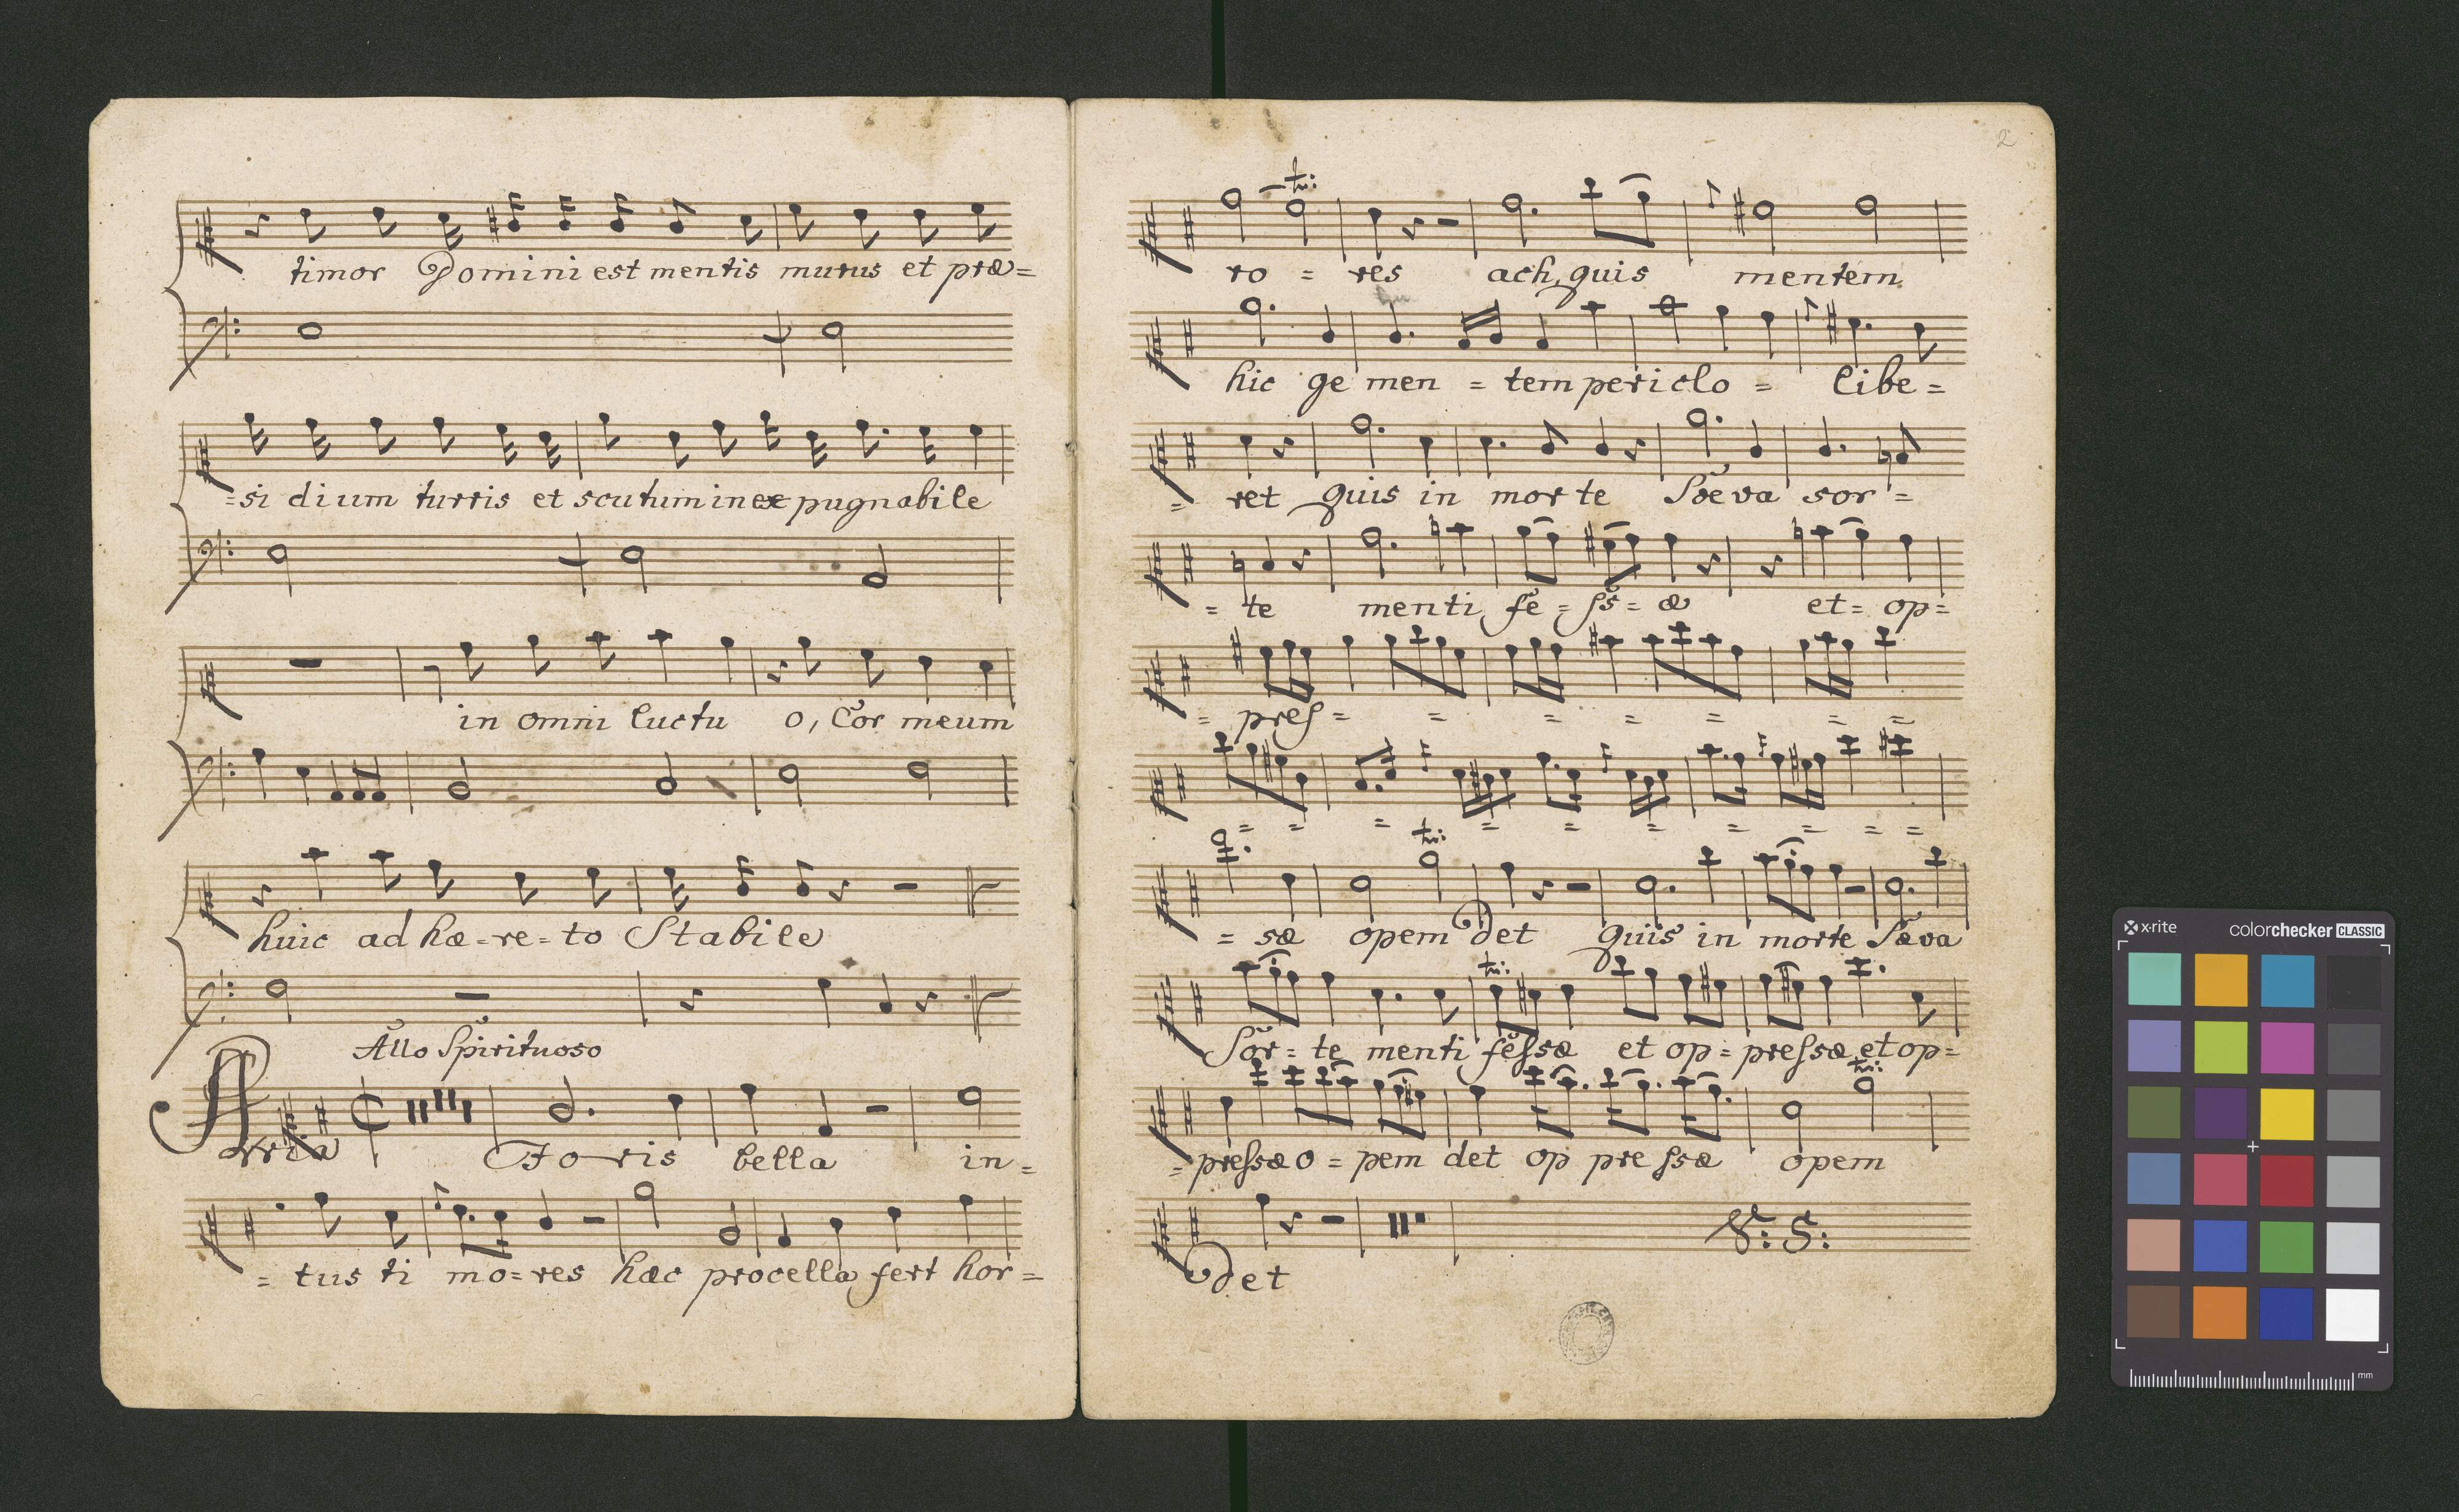 timor Domini est mentis murus et præ=
=si dium turris et scutum inex pugnabile
in omni luctu o, Cor meum
huic ad hæ=re=to Stabile
Allo Spirituoso
Arria Foris bella in=
= tus ti mo=res hæc procella fert hor=
2
tr:
ro = res ach quis mentem
hic ge men = tem periclo = libe=
= ret quis in morte Sæva sor =
= te menti fe = ſs = æ et= op=
= preſ = = = = = = =
= = = = = = = = = =
tr:
= sæ opem det quis in morte Sæva
tr:
Sor= te menti feſsæ et op= preſsæ et op=
tr:
=preſsæ o = pem det op pre ſsæ opem
det
S: S:
x-rite colorchecker CLASSIC
mm